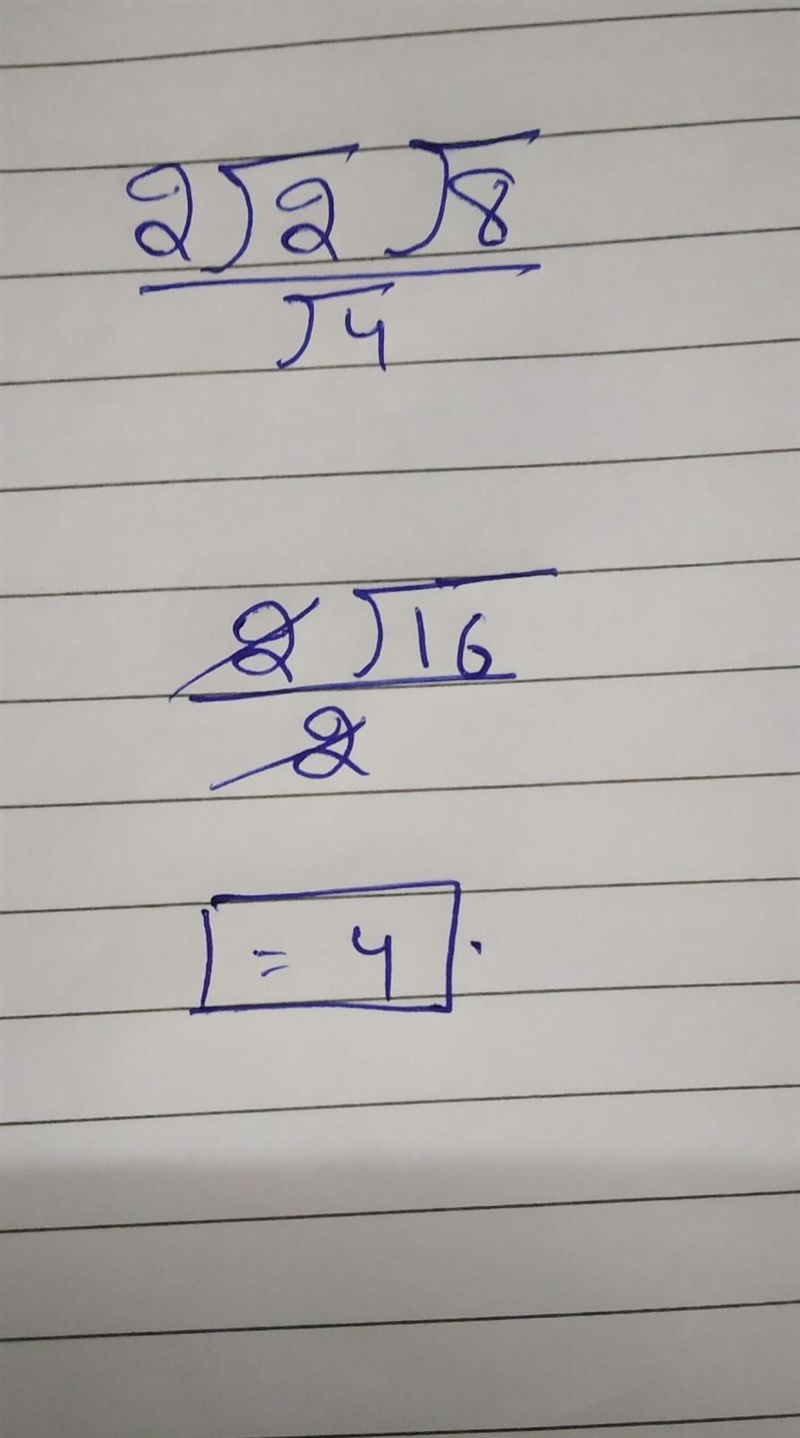 2√2 √8
√4
2 √16
2
= 4 .